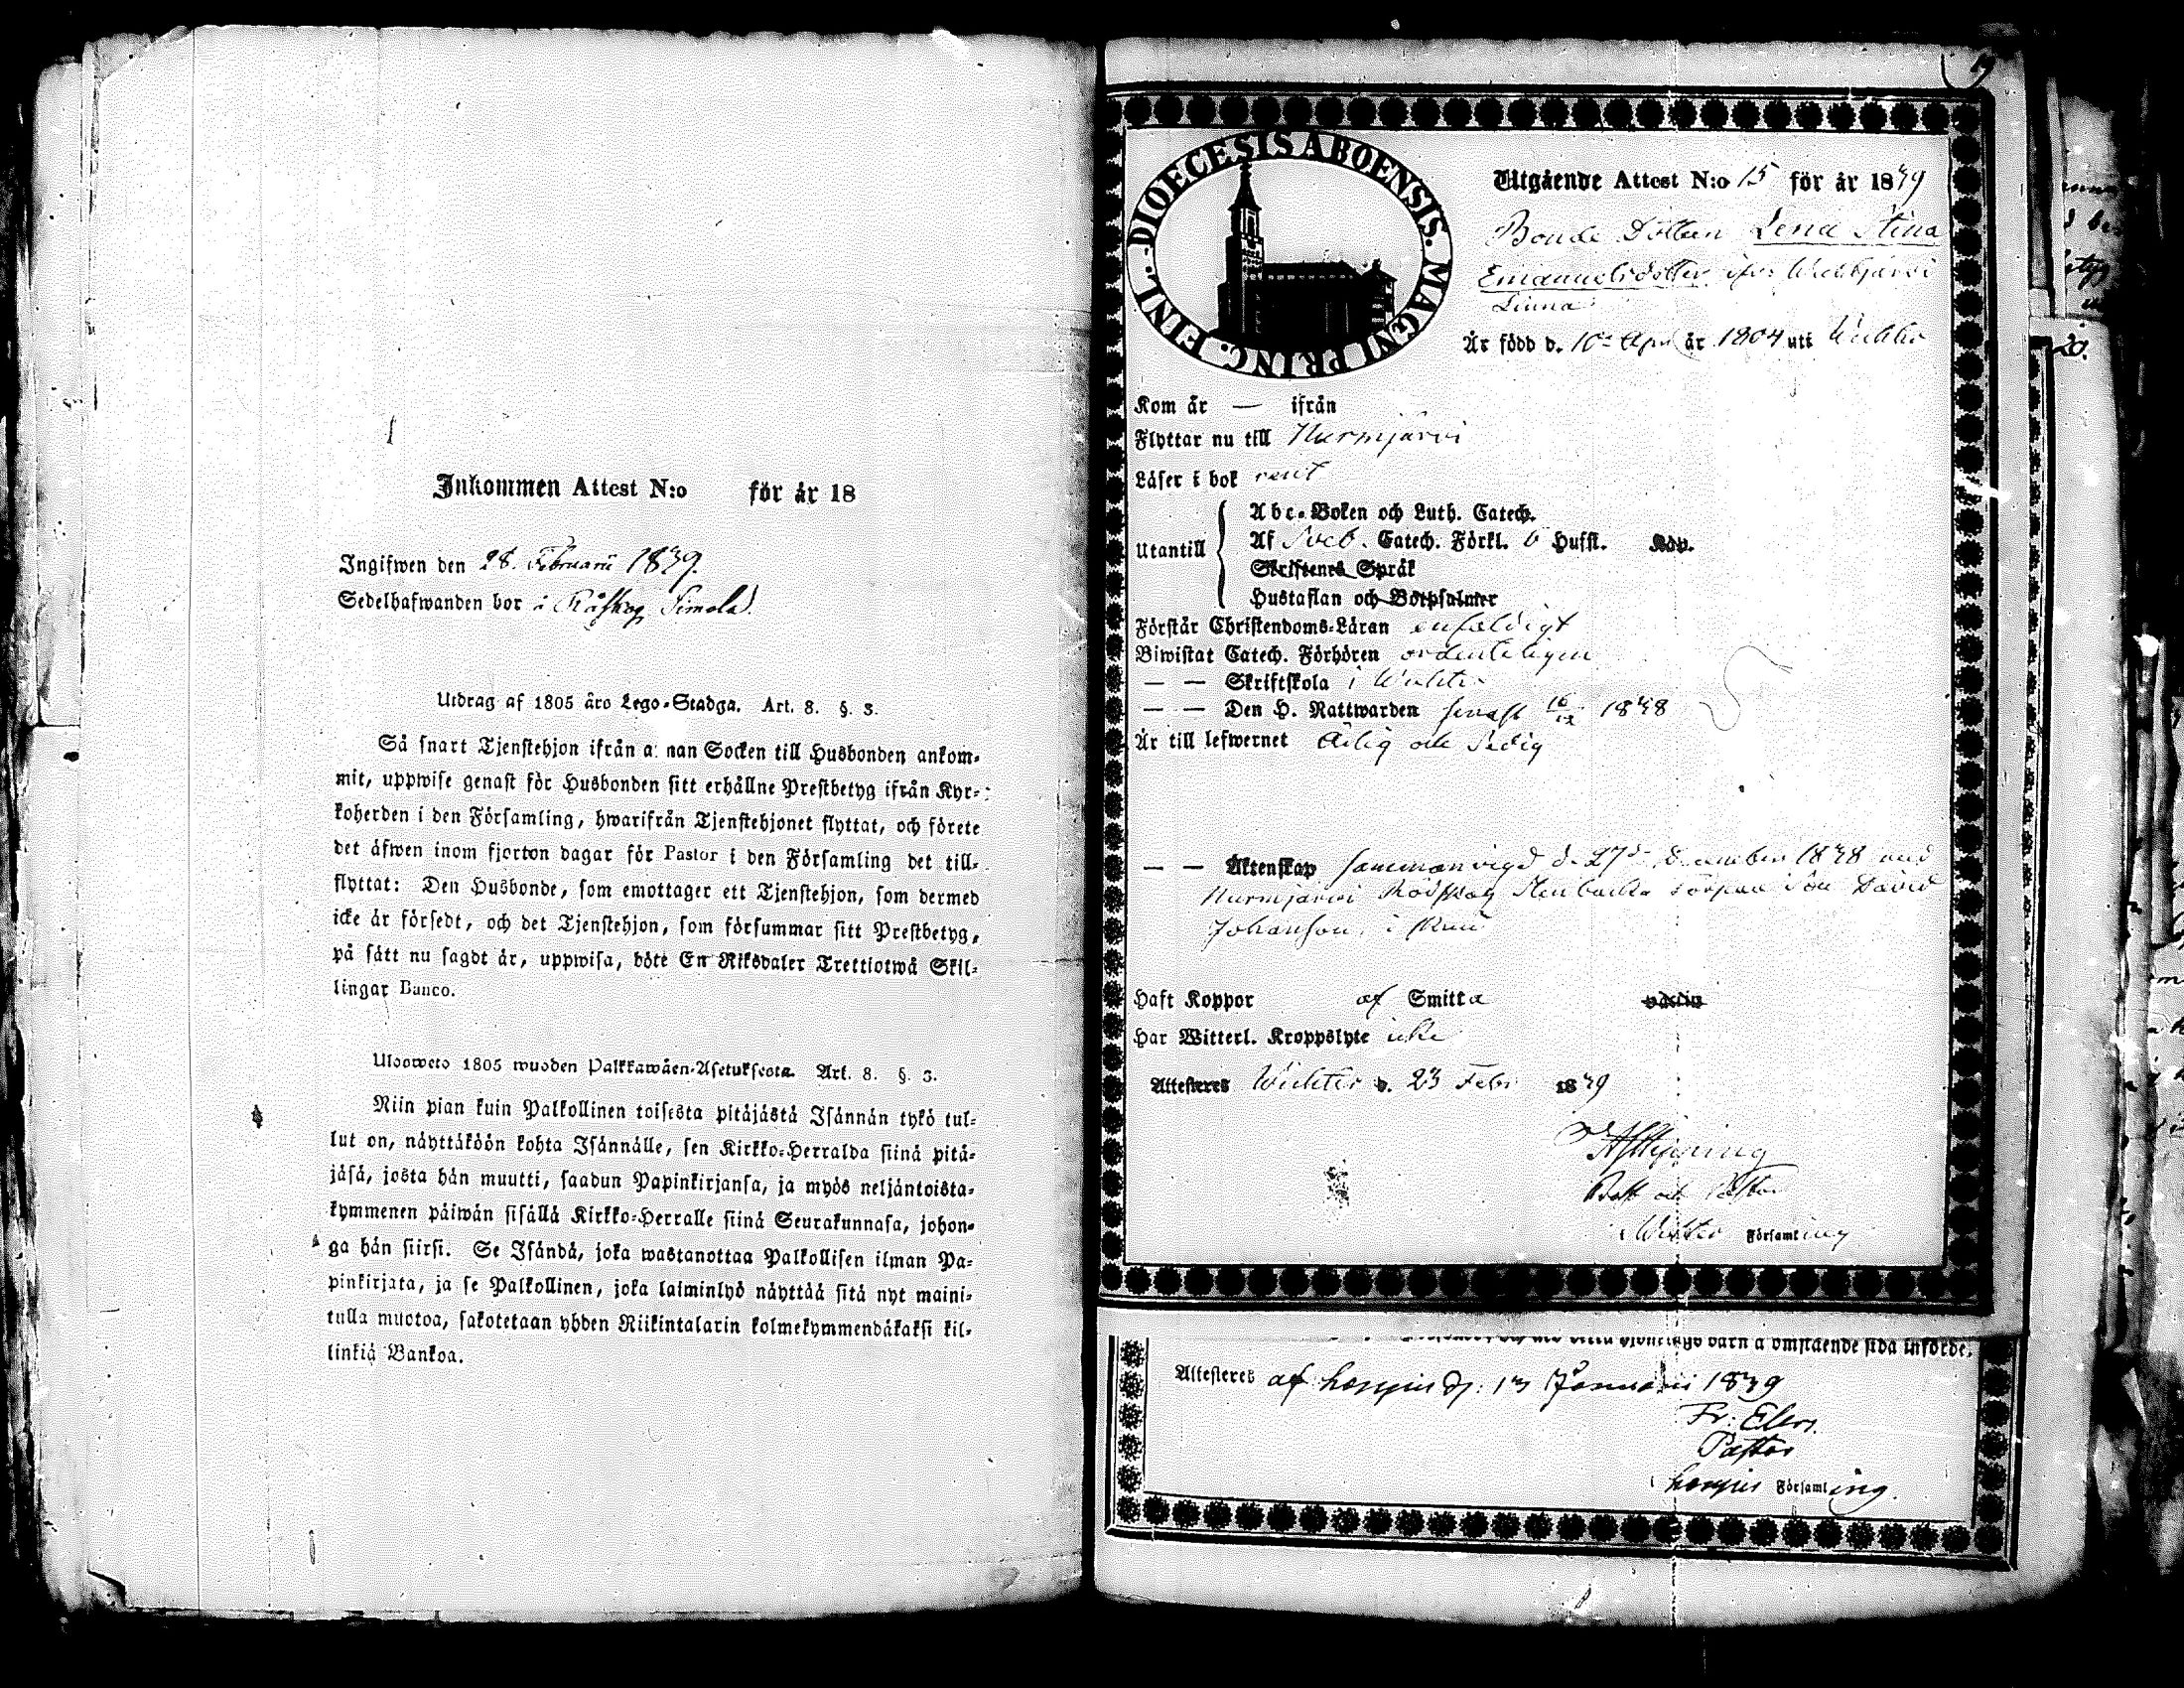 Inkommen Attest N:o för år 18
Ingifwen den 28. Februarii 1839.
Sedelhafwanden bor å Råskog Simola.
Utdrag af 1805 års Lego-Stadga. Art. 8. §. 3.
Så snart Tjenstehjon ifrån annan Socken till Husbonden ankom-
mit, uppwise genast för Husbonden sitt erhållne Prestbetyg ifrån Kyr-
koherden i den Församling, hwarifrån Tjenstehjonet flyttat, och förete
det äfwen inom fjorton dagar för Pastor i den Församling det till-
flyttat: Den Husbonde, som emottager ett Tjenstehjon, som dermed
icke är försedt, och det Tjenstehjon, som försummar sitt Prestbetyg,
på sätt nu sagdt är, uppwisa, böte En Riksdaler Trettiotwå Skil-
lingar Banco.
Ulosweto 1805 wuoden Palkkawäen-Asetuksesta. Art. 8. §. 3.
Niin pian kuin Palkollinen toisesta pitäjästä Isännän tykö tul-
lut on, näyttäköön kohta Isännälle, sen Kirkko-Herralda siinä pitä-
jäsä, josta hän muutti, saadun Papinkirjansa, ja myös neljäntoista-
kymmenen päiwän sisällä Kirkko-Herralle siinä Seurakunnasa, johon-
ga hän siirsi. Se Isändä, joka wastanottaa Palkollisen ilman Pa-
pinkirjata, ja se Palkollinen, joka laiminlyö näyttää sitä nyt maini-
tulla muotoa, sakotetaan yhden Riikintalarin kolmekymmendäkaksi kil-
linkiä Bankoa.
19
DIOECESIS ABOENSIS. MAGNI PRINC. FINL.
Utgående Attest N:o 15 för år 1839
Bonde Dottren Lena Stina
Emanuelsdotter ifrån Wichtijärvi
Linna
Är född d. 10de Apr. år 1804 uti Wichtis
Kom år — ifrån
Flyttar nu till Nurmijärvi
Läser i bok rent
Utantill
Abc-Boken och Luth. Catech.
Af Sveb. Catech. Förkl. 6 Hufst. Kap.
Skriftenes Språk
Hustaflan och Botpsalmer
Förstår Christendoms-Läran enfaldigt
Biwistat Catech. Förhören ordenteligen
— — Skriftskola i Wichtis
— — Den H. Nattwarden senast 1838
Är till lefwernet Ärlig och Sedig
— — Äktenskap sammanvigd d. 27de December 1838 med
Nurmijärvi Rödskog Stenbacka Torpare Son David
Johansson, i
Haft Koppor af Smitta
Har Witterl. Kroppslyte icke
Attesteres Wichtis d. 23 Febr 1839
och Pastor
i Wichtis Församling
barn å omstående sida införde.
Attesteres af Loppis d. 13 Januarii 1839
Fr: Elers.
Pastor
i Loppis Församling.
20.